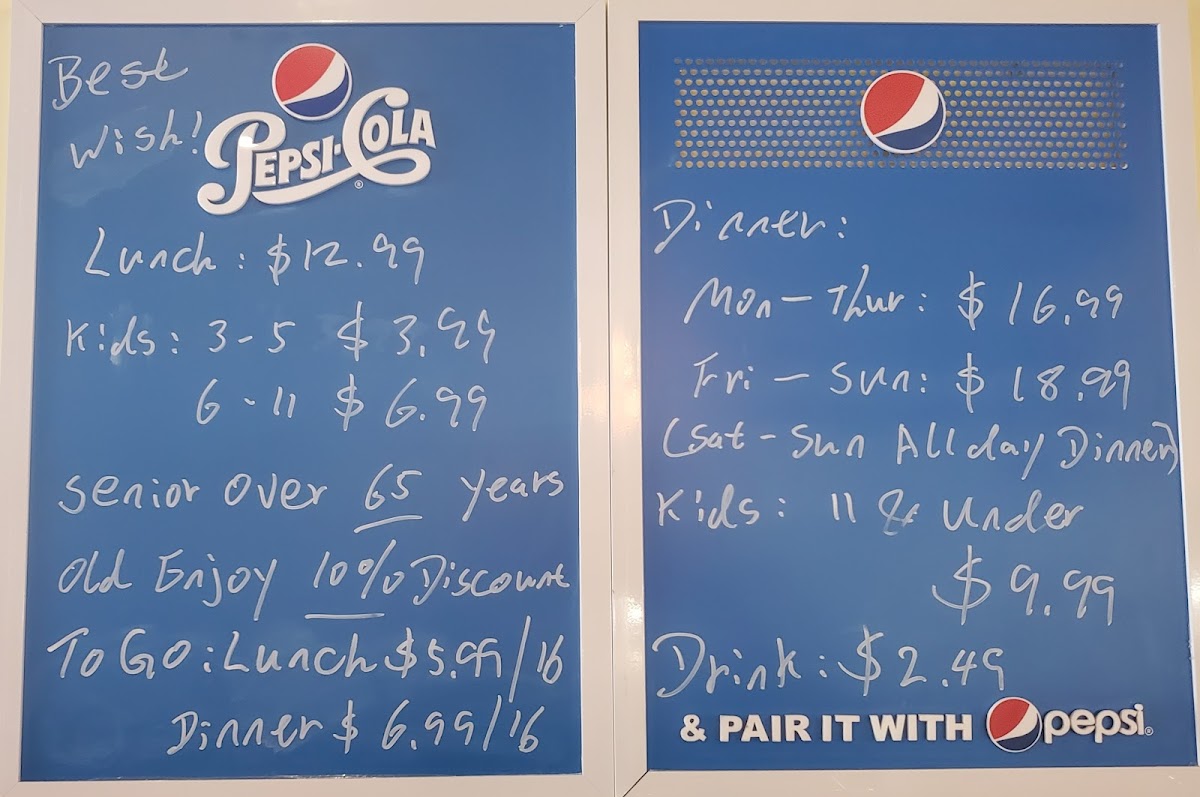 Best
Wish!
PEPSI-COLA®
Lunch: $12.99
Kids: 3-5 $3.99
6-11 $6.99
Senior Over 65 years
Old Enjoy 10% Discount
To Go: Lunch $5.99/lb
Dinner $6.99/lb
Dinner:
Mon-Thur: $16.99
Fri-Sun: $18.99
(Sat-Sun All day Dinner)
Kids: 11 & Under
$9.99
Drink: $2.49
& PAIR IT WITH pepsi®